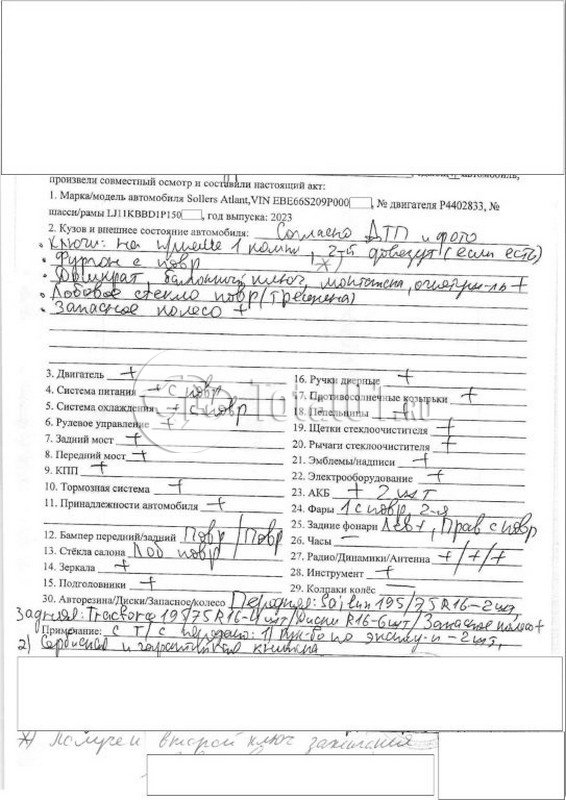 произвели совместный осмотр и составили настоящий акт:
1. Марка/модель автомобиля Sollers Atlant,VIN EBE66S209P000 , № двигателя P4402833, №
шасси/рамы LJ11KBBD1P150 , год выпуска: 2023
2. Кузов и внешнее состояние автомобиля: Согласно ДТП и фото
• Ключи: на прицеле 1 компл, *) 2-й довезут (если есть)
• Фургон с повр
• Домкрат, балонный ключ, монтажка, огнетуш-ль +
• Лобовое стекло повр (трещина)
• Запасное колесо +
3. Двигатель +
4. Система питания + с повр
5. Система охлаждения + с повр
6. Рулевое управление +
7. Задний мост +
8. Передний мост +
9. КПП +
10. Тормозная система +
11. Принадлежности автомобиля +
12. Бампер передний/задний Повр / Повр
13. Стёкла салона Лоб повр
14. Зеркала +
15. Подголовники +
16. Ручки дверные +
17. Противосолнечные козырьки +
18. Пепельницы +
19. Щетки стеклоочистителя +
20. Рычаги стеклоочистителя +
21. Эмблемы/надписи +
22. Электрооборудование +
23. АКБ + 2 шт
24. Фары 1 с повр, 2-я
25. Задние фонари Лев +, Прав с повр
26. Часы —
27. Радио/Динамики/Антенна +/+/+
28. Инструмент +
29. Колпаки колёс —
30. Авторезина/Диски/Запасное/колесо Передняя: Sailun 195/75 R16-2шт,
Задняя: 195/75 R16-4шт/Диски R16-6шт/Запасное колесо+
Примечание: С Т/С передано: 1) Рук-во по эксплу-и - 2шт,
2) Сервисная и гарантийная книжка
*) Получен второй ключ зажигания
TotalOUT.RU